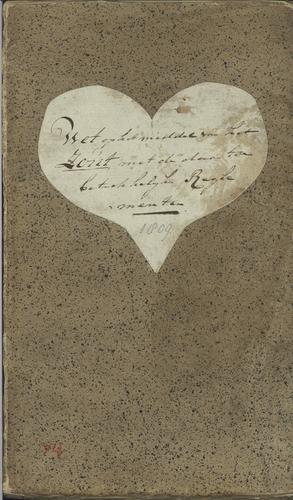 Wet op het middel van het
Zout met de daar toe
betrekkelijke Regle
menten
1809